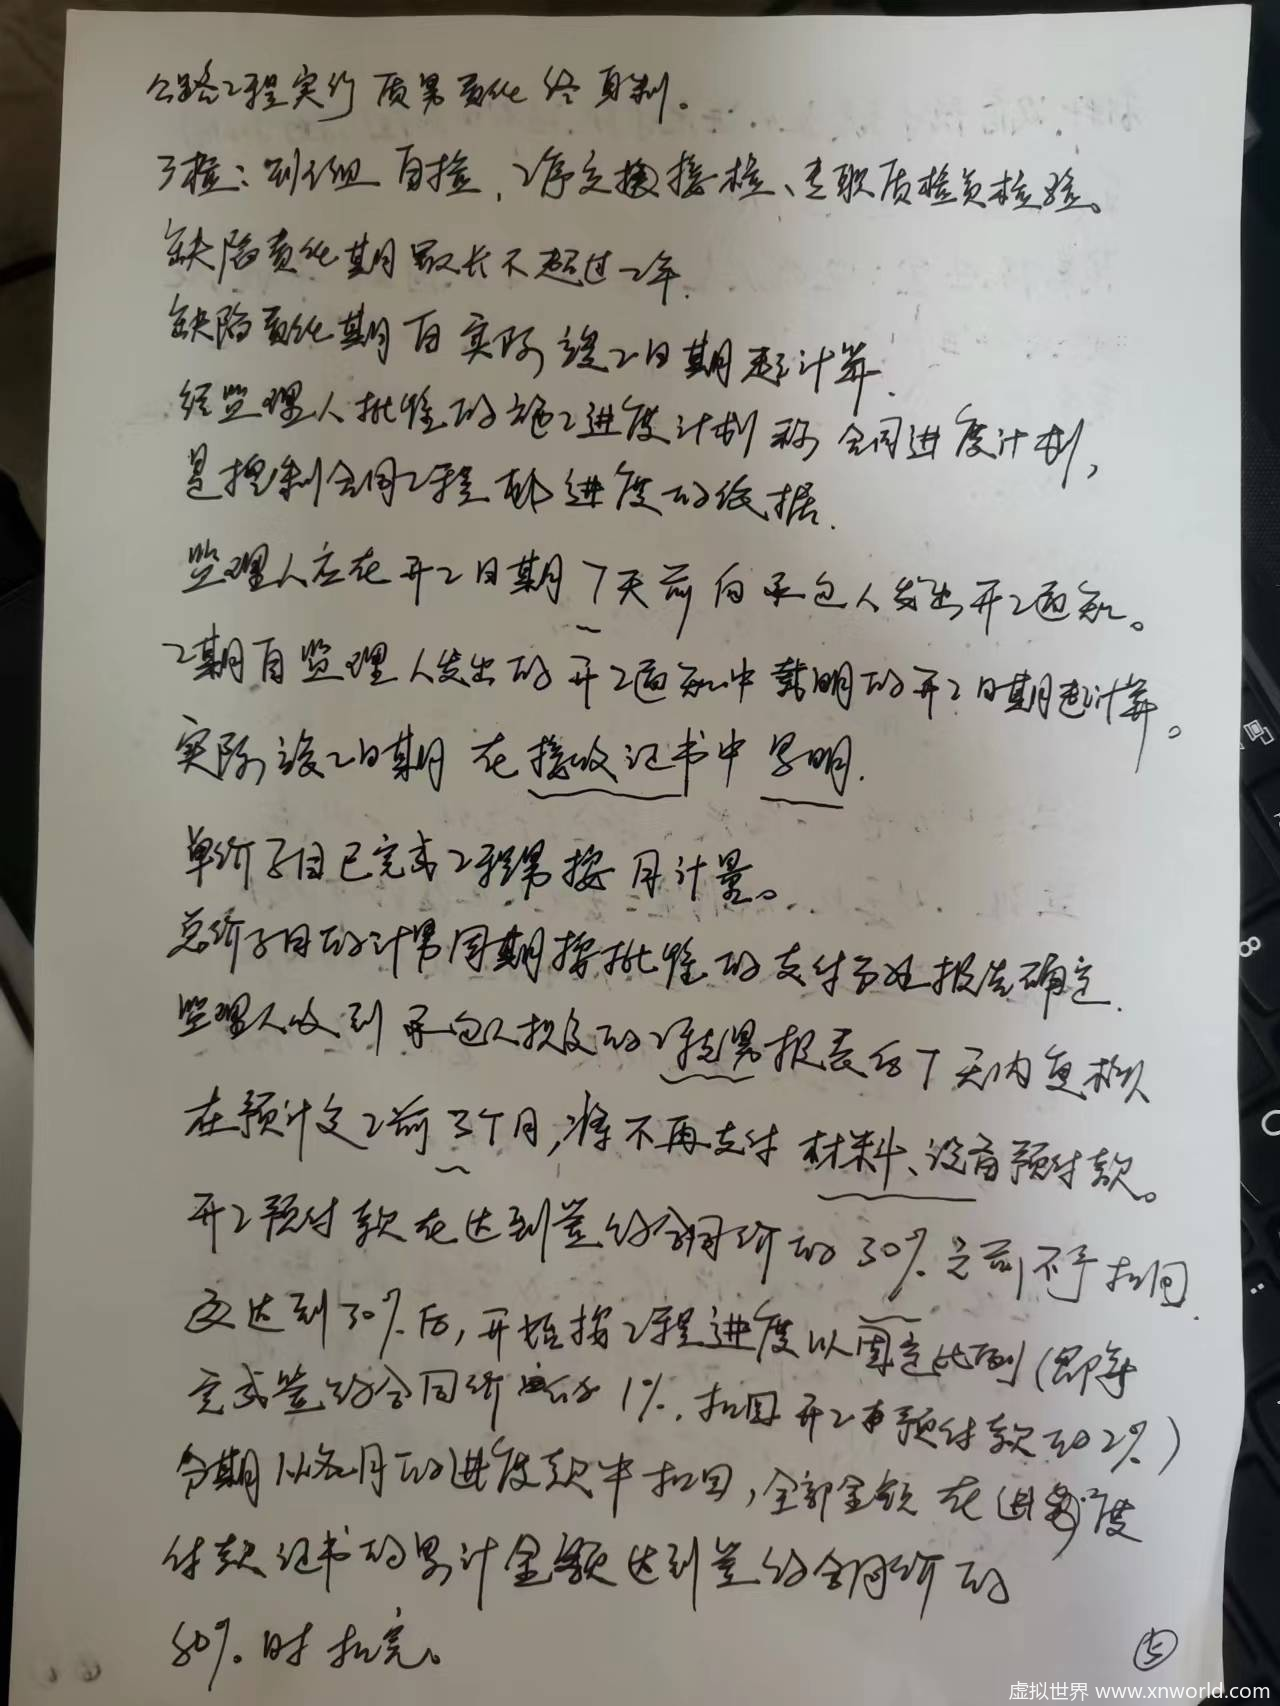 公路工程实行质量责任终身制。
三检：班组自检、工序交接检、专职质检员检验。
缺陷责任期最长不超过二年.
缺陷责任期自实际竣工日期起计算.
经监理人批准的施工进度计划称合同进度计划，
是控制合同工程进度的依据.
监理人应在开工日期7天前向承包人发出开工通知。
工期自监理人发出的开工通知中载明的开工日期起计算。
实际竣工日期在接收证书中写明.
单价子目已完成工程量按月计量。
总价子目的计量周期按批准的支付分解报告确定.
监理人收到承包人提交的工程量报表后7天内复核
在预计交工前3个月，将不再支付材料、设备预付款。
开工预付款在达到签约合同价的30%之前不予扣回.
在达到30%后，开始按工程进度以固定比例（即每
完成签约合同价的1%，扣回开工预付款的2%）
分期从各月的进度款中扣回，全部金额在进度
付款证书的累计金额达到签约合同价的
80%时扣完。
⑤
虚拟世界 www.xnworld.com